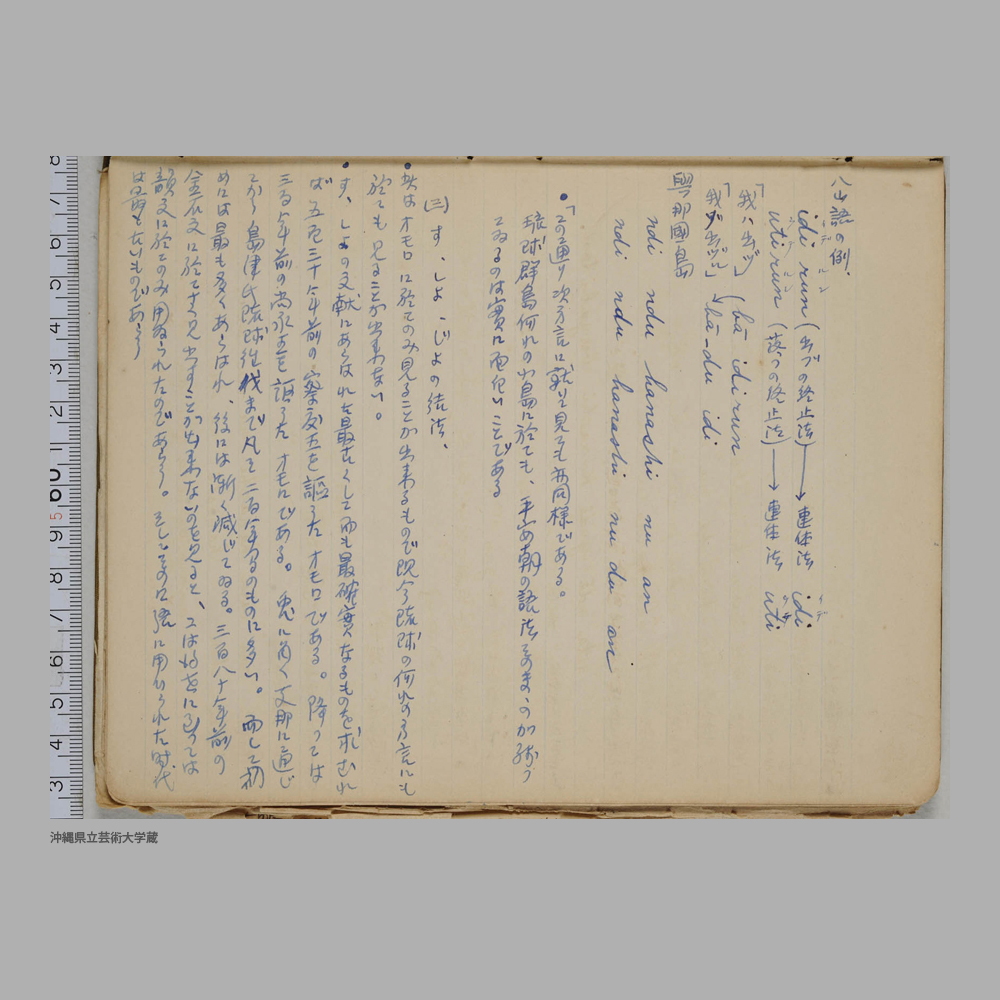 八重山語の例.
idi run (出ヅの終止法) → 連体法 idi
uti run (落つの終止法) → 連体法 uti
「我ハ出ヅ」 (bā idi run
「我ゾ出ヅル」 bā-du idi
與那國島
ndi ndu hanashi nu an
ndi ndu hanashi nu du an
・「この通り次方言に就いて見ても亦同様である。
琉球群島何れの小島に於ても、平安朝の語法そのまゝの
てゐるのは實に面白いことである
(三) す、しよ、じよの結法、
・此はオモロに於てのみ見ることが出来るもので現今琉球の何れの方言にも
於ても見ることが出来ない。
・す、しよの文献にあらはれた最古くして而も最確實なるものを求むれ
ば 五百三十年前の察度王を謳うたオモロである。降っては
三百年前の尚永王を謳うたオモロである。兎に角く支那に通じ
てから島津氏琉球征伐まで凡そ二百年間のものに多い。而して初
めには最も多くあらはれ、後には漸く減じてゐる。三百八十年前の
金石文に於てすら見出すことが出来ないのを見ると、
韻文に於てのみ用ゐられたのであらう。そしてその口語に用ひられた時代
は最も古いものであらう
沖縄県立芸術大学蔵